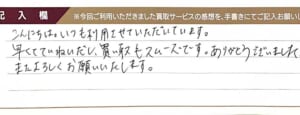 記入欄 ※今回ご利用いただきました買取サービスの感想を、手書きにてご記入お願い
こんにちは。いつも利用させていただいています。
早くてていねいだし、買い取りもスムーズです。ありがとうございました
またよろしくお願いいたします。